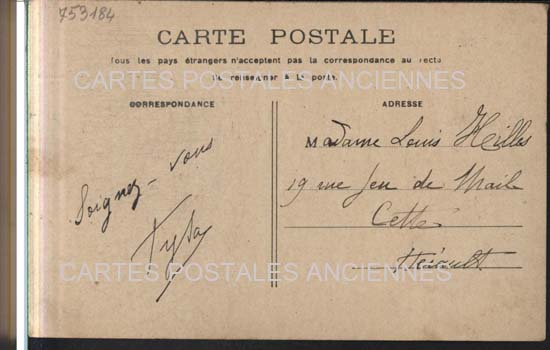 753184
CARTE POSTALE
Tous les pays étrangers n'acceptent pas la correspondance au recto
Se renseigner à la poste.
CARTES POSTALES ANCIENNES
CORRESPONDANCE
ADRESSE
Soignez-vous
Madame Louis Hilles
19 rue Jeu de Mail
Cette
Hérault
CARTES POSTALES ANCIENNES